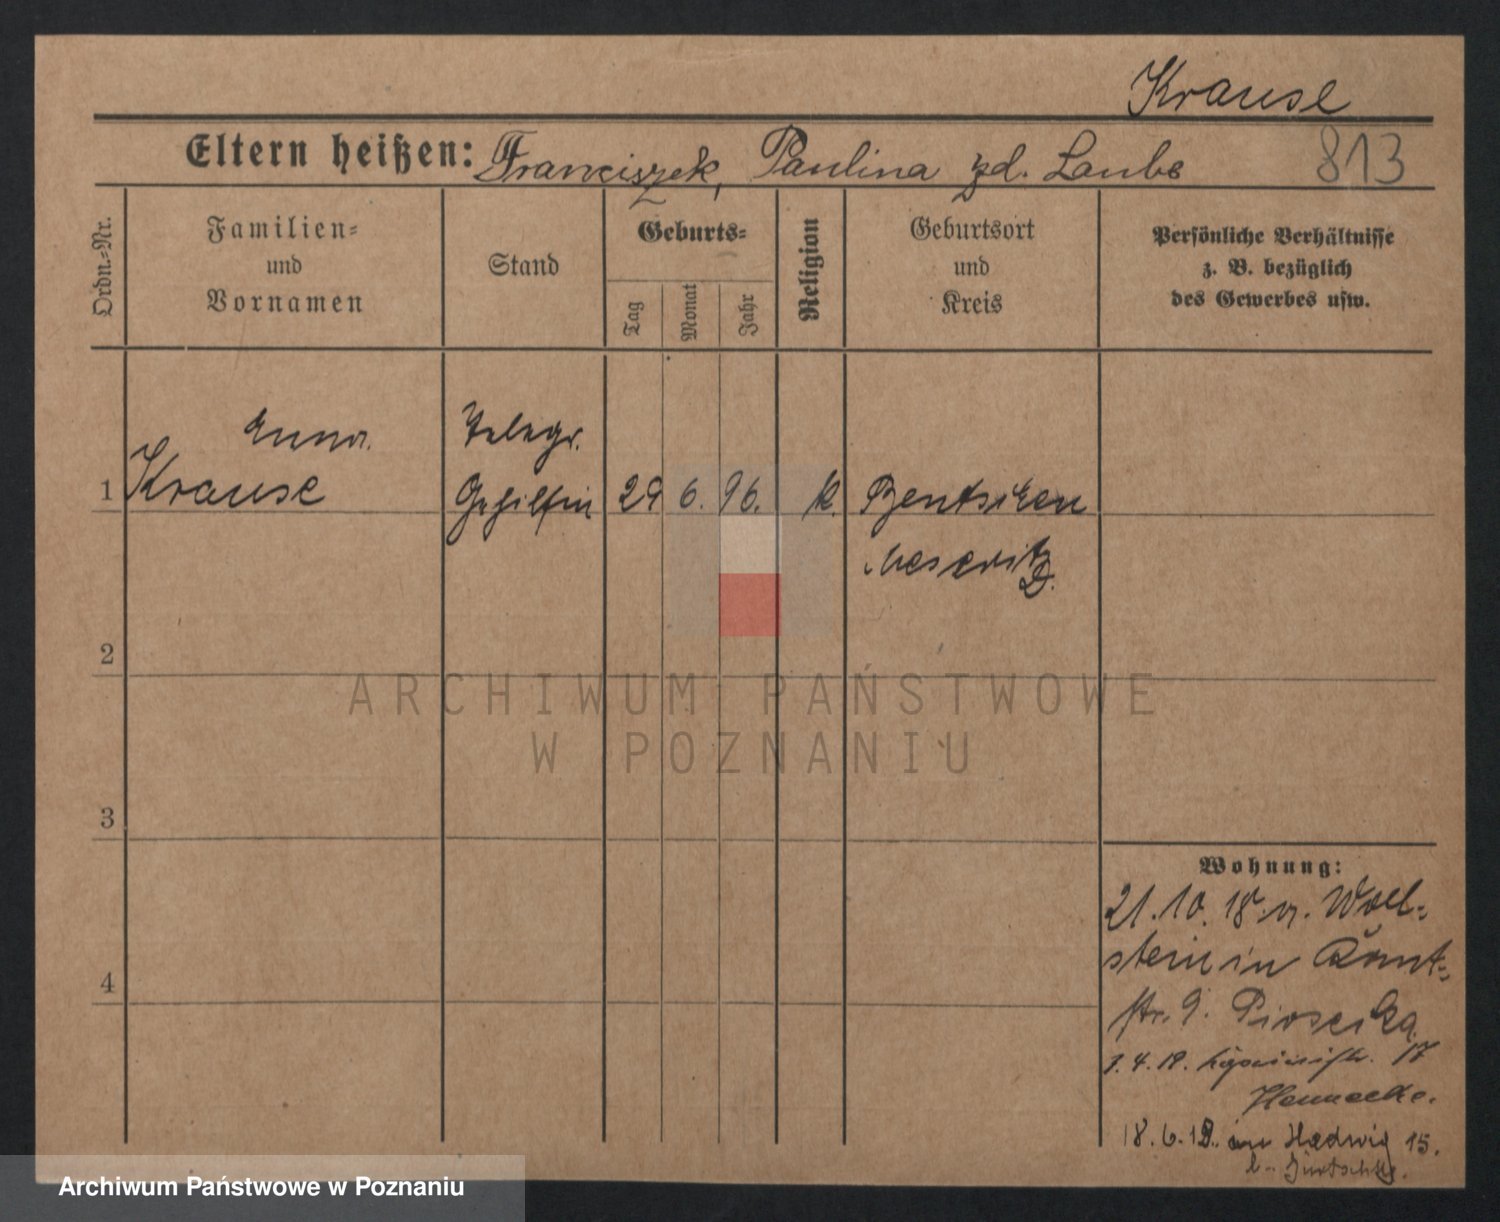 Krause
Eltern heißen: Franciszek, Paulina zd. Laube
813
Ordn.-Nr.
Familien- und Vornamen
Stand
Geburts-
Tag
Monat
Jahr
Religion
Geburtsort und Kreis
Persönliche Verhältnisse
z. B. bezüglich
des Gewerbes usw.
Anna
Telegr.
1 Krause Gehilfin 29 6. 96. k. Bentschen
Meseritz
2
ARCHIWUM PAŃSTWOWE
W POZNANIU
3
4
Wohnung:
21.10.18. a. Woll-
stein in
str. 9.
1.4.19. 17
Hennecke.
18.6.19. Hedwig 15.
Archiwum Państwowe w Poznaniu